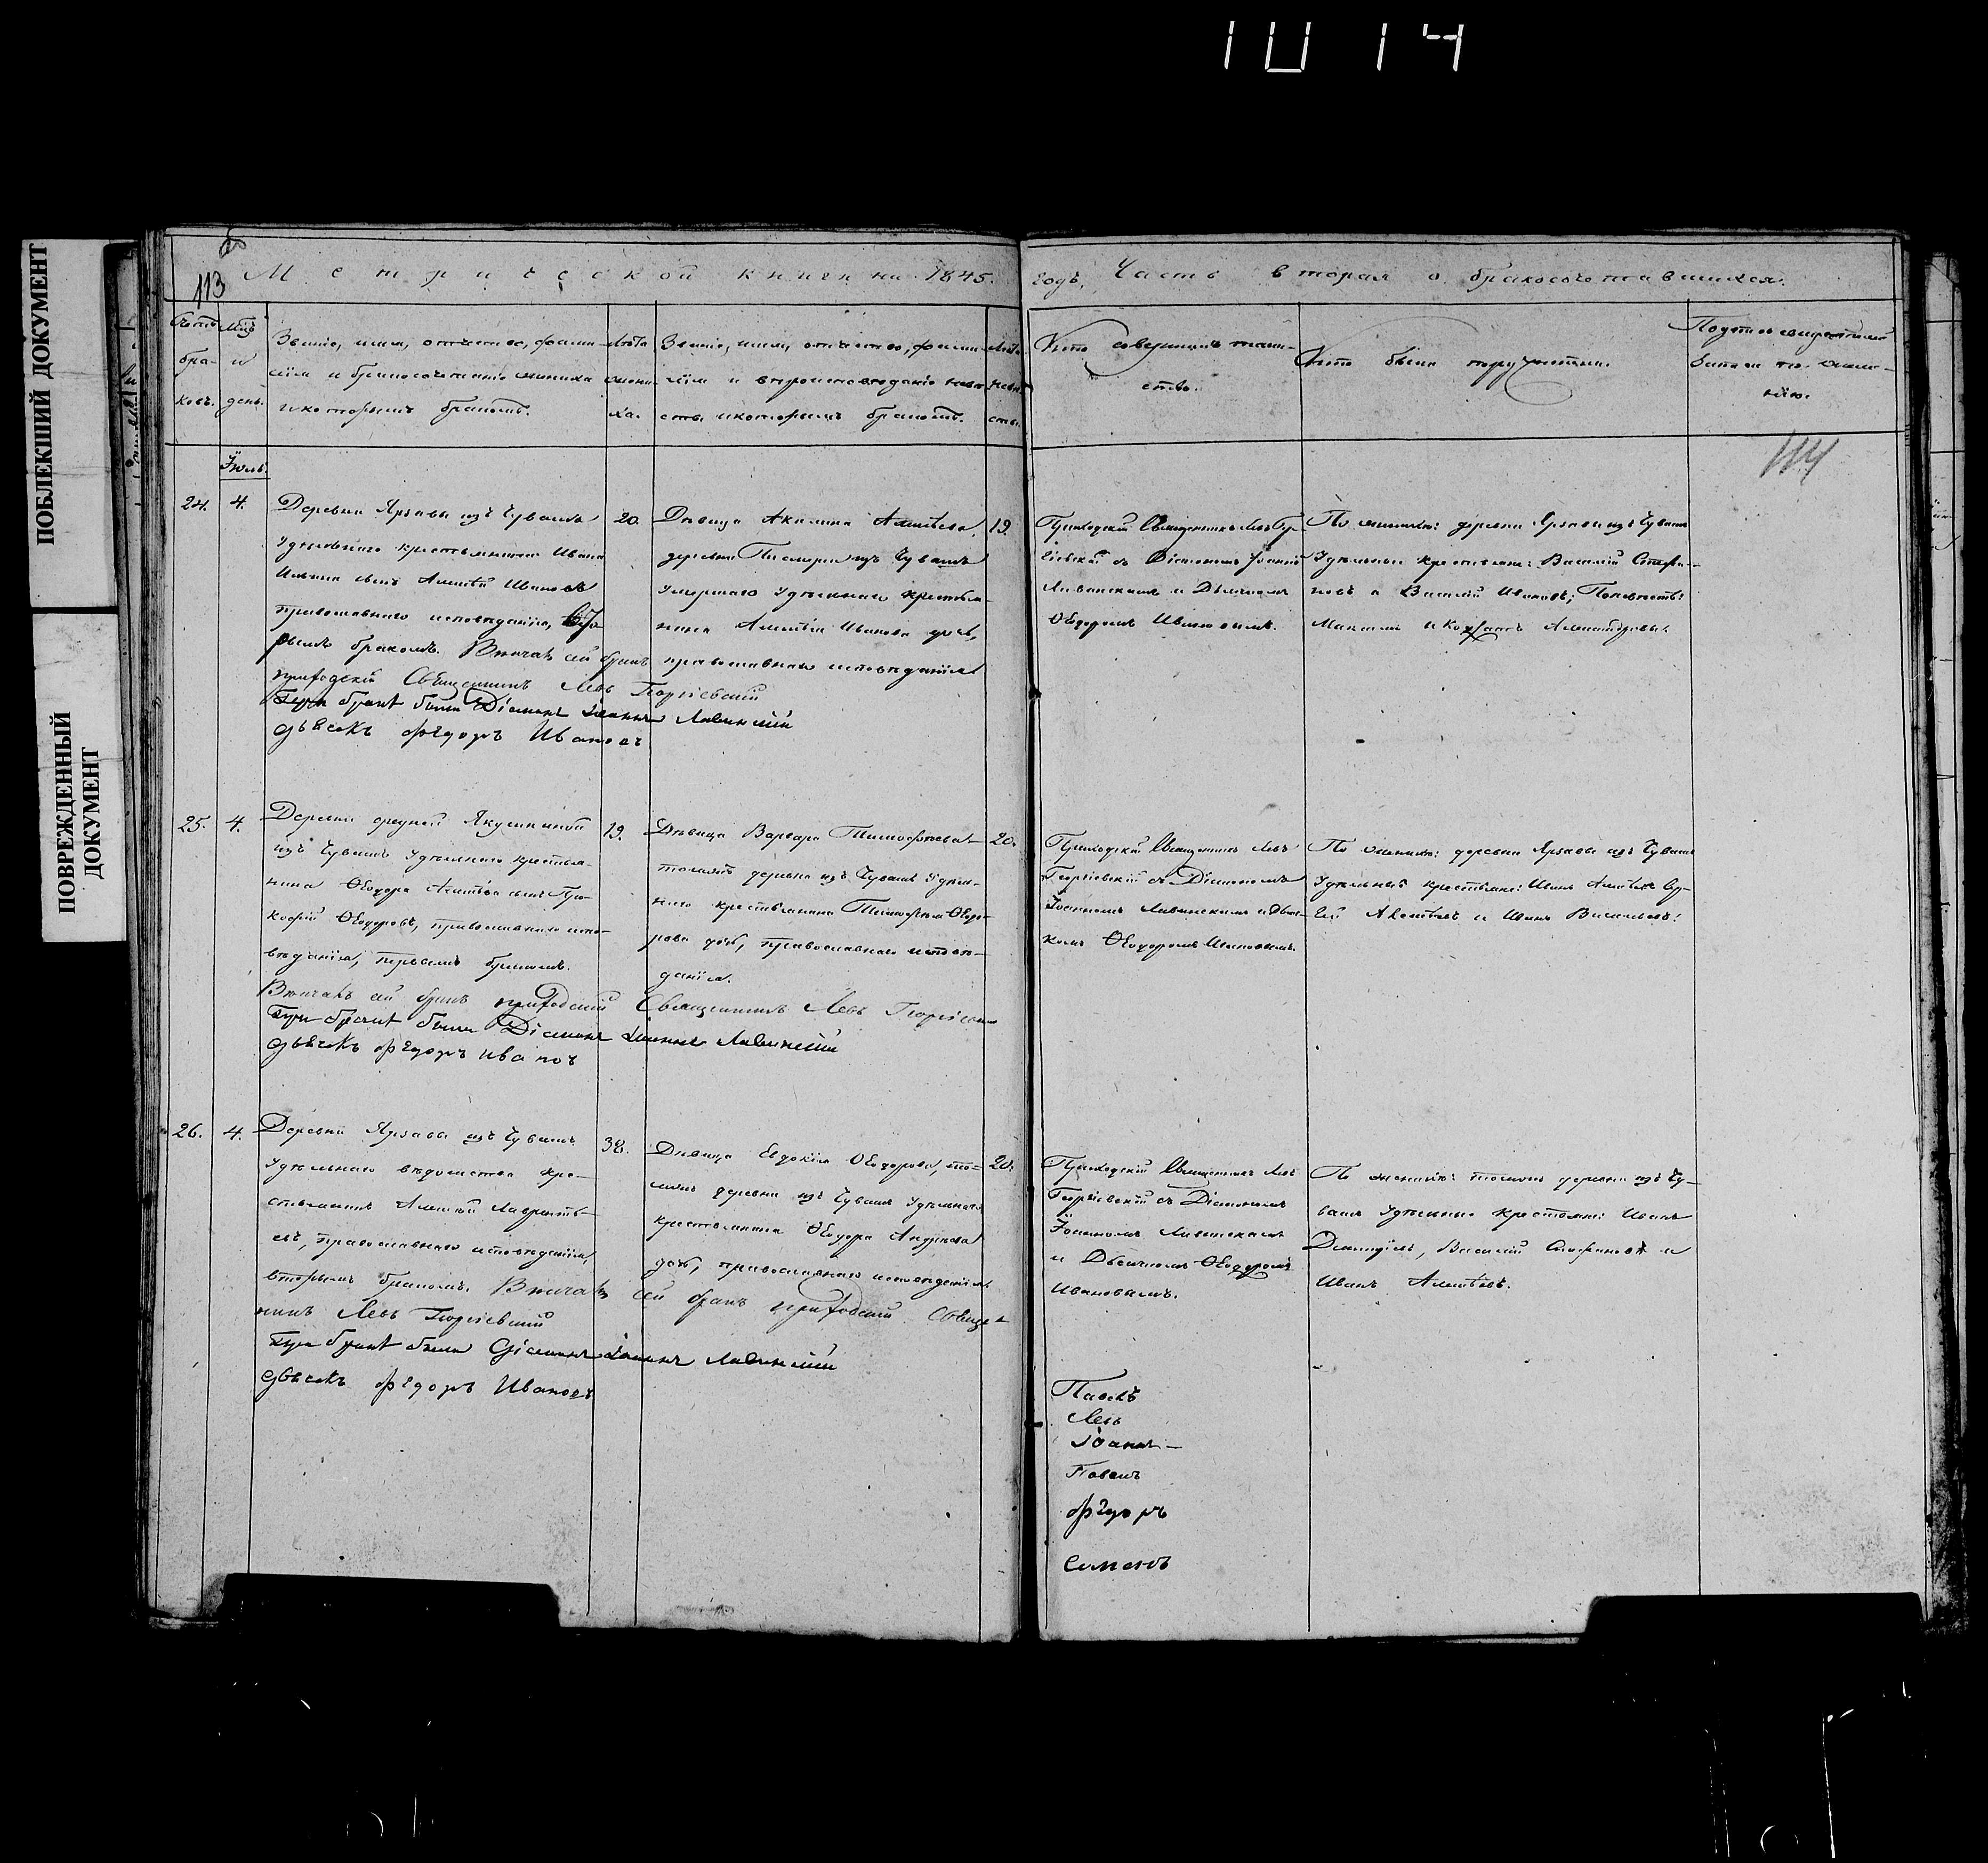 1014
ПОБЛЕКШИЙ ДОКУМЕНТ
ПОВРЕЖДЕННЫЙ
ДОКУМЕНТ
113
Метрической книги на 1845.
годъ, Часть вторая о бракосочетавшихся.
Счетъ
бра-
ковъ.
и
день.
Званіе, имя, отчество, фами-
лія и жениха
и которымъ бракомъ.
Лѣта
жени-
ха.
Званіе, имя, отчество, фами-
лія и вѣроисповѣданіе невѣ-
сты и которымъ бракомъ.
Лѣта
невѣ-
сты.
Кто совершилъ таин-
ство.
Кто были поручители.
Подпись свидѣтелей
записи по жела-
нію.
114
Іюль
24.
4.
Деревни Ярзави изъ Чувашъ
Удѣльнаго крестьянина Ивана
Ильина сынъ Алексѣй Ивановъ
православнаго исповѣданія,
рымъ бракомъ. Вѣнчалъ сей бракъ
приходскій Священникъ Левъ Георгіевскій
При бракѣ были Діаконъ Іоаннъ Ливинскій
дьячекъ Фѣдоръ Ивановъ
20.
Дѣвица Акилина Алексѣева,
деревни изъ Чувашъ
умершаго Удѣльнаго крестья-
нина Алексѣя Иванова дочь,
православнаго исповѣданія
19.
Приходскій Священникъ Левъ Геор-
гіевскій съ Діакономъ Іоанномъ
Ливинскимъ и Дьячкомъ
Ѳеодоромъ Ивановымъ.
По женихѣ: деревни Ярзави изъ Чувашъ
Удѣльные крестьяне: Василій Стефа-
новъ и Василій Ивановъ; По невѣстѣ:
Максимъ и
25.
4.
Деревни средней Якушкиной
изъ Чувашъ Удѣльнаго крестья-
нина Ѳеодора Алексѣева сынъ Про-
кофій Ѳеодоровъ, православнаго испо-
вѣданія, первымъ бракомъ.
Вѣнчалъ сей бракъ приходскій Священникъ Левъ Георгіевскій
При бракѣ были Діаконъ Іоаннъ Ливинскій
дьячекъ Фѣдоръ Ивановъ
19.
Дѣвица Варвара Тимофѣева
тойже деревни изъ Чувашъ Удѣль-
наго крестьянина Тимофѣя Ѳеодо-
рова дочь, православнаго исповѣ-
данія.
20.
Приходскій Священникъ Левъ
Георгіевскій съ Діакономъ
Іоанномъ Ливинскимъ и Дьяч-
комъ Ѳеодоромъ Ивановымъ.
По женихѣ: деревни Ярзави изъ Чувашъ
Удѣльные крестьяне: Иванъ
Алексѣевъ и Иванъ Васильевъ:
26.
4.
Деревни Ярзави изъ Чувашъ
Удѣльнаго вѣдомства кре-
стьянинъ Алексѣй Лаврентье-
въ, православнаго исповѣданія,
вторымъ бракомъ. Вѣнчалъ сей бракъ приходскій Священ-
никъ Левъ Георгіевскій
При бракѣ были Діаконъ Іоаннъ Ливинскій
дьячекъ Фѣдоръ Ивановъ
38.
Дѣвица Евдокія Ѳеодорова, то-
йже деревни изъ Чувашъ Удѣльнаго
крестьянина Ѳеодора Андреева
дочь, православнаго исповѣданія
20.
Приходскій Священникъ Левъ
Георгіевскій съ Діакономъ
Іоанномъ Ливинскимъ
и Дьячкомъ Ѳеодоромъ
Ивановымъ.
По женихѣ: тойже деревни изъ Чу-
вашъ Удѣльные крестьяне: Иванъ
Василій Стефановъ и
Иванъ Алексѣевъ.
Павелъ
Левъ
Іоаннъ
Павелъ
Фѣдоръ
Семенъ